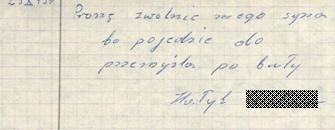 Proszę zwolnić mego syna
bo pojedzie do
przemyśla po buty